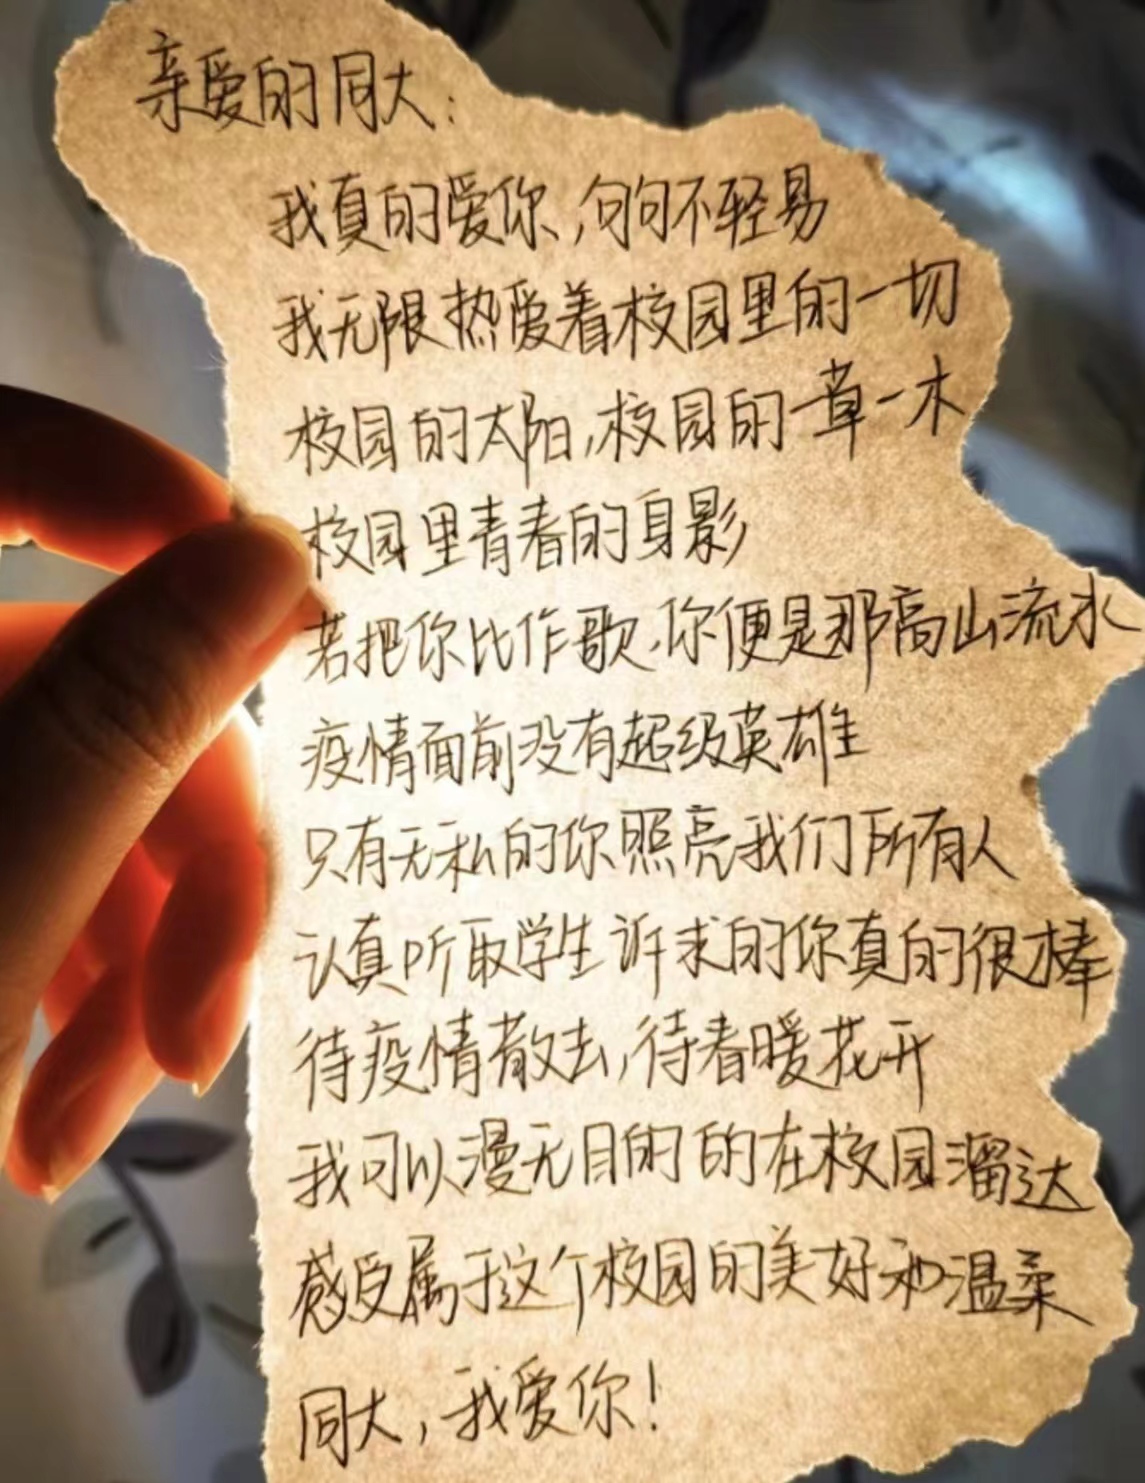 亲爱的同大：
我真的爱你，句句不轻易
我无限热爱着校园里的一切
校园的太阳，校园的一草一木
校园里青春的身影
若把你比作歌，你便是那高山流水
疫情面前没有超级英雄
只有无私的你照亮我们所有人
认真听取学生诉求的你真的很棒
待疫情散去，待春暖花开
我可以漫无目的的在校园溜达
感受属于这个校园的美好和温柔
同大，我爱你！